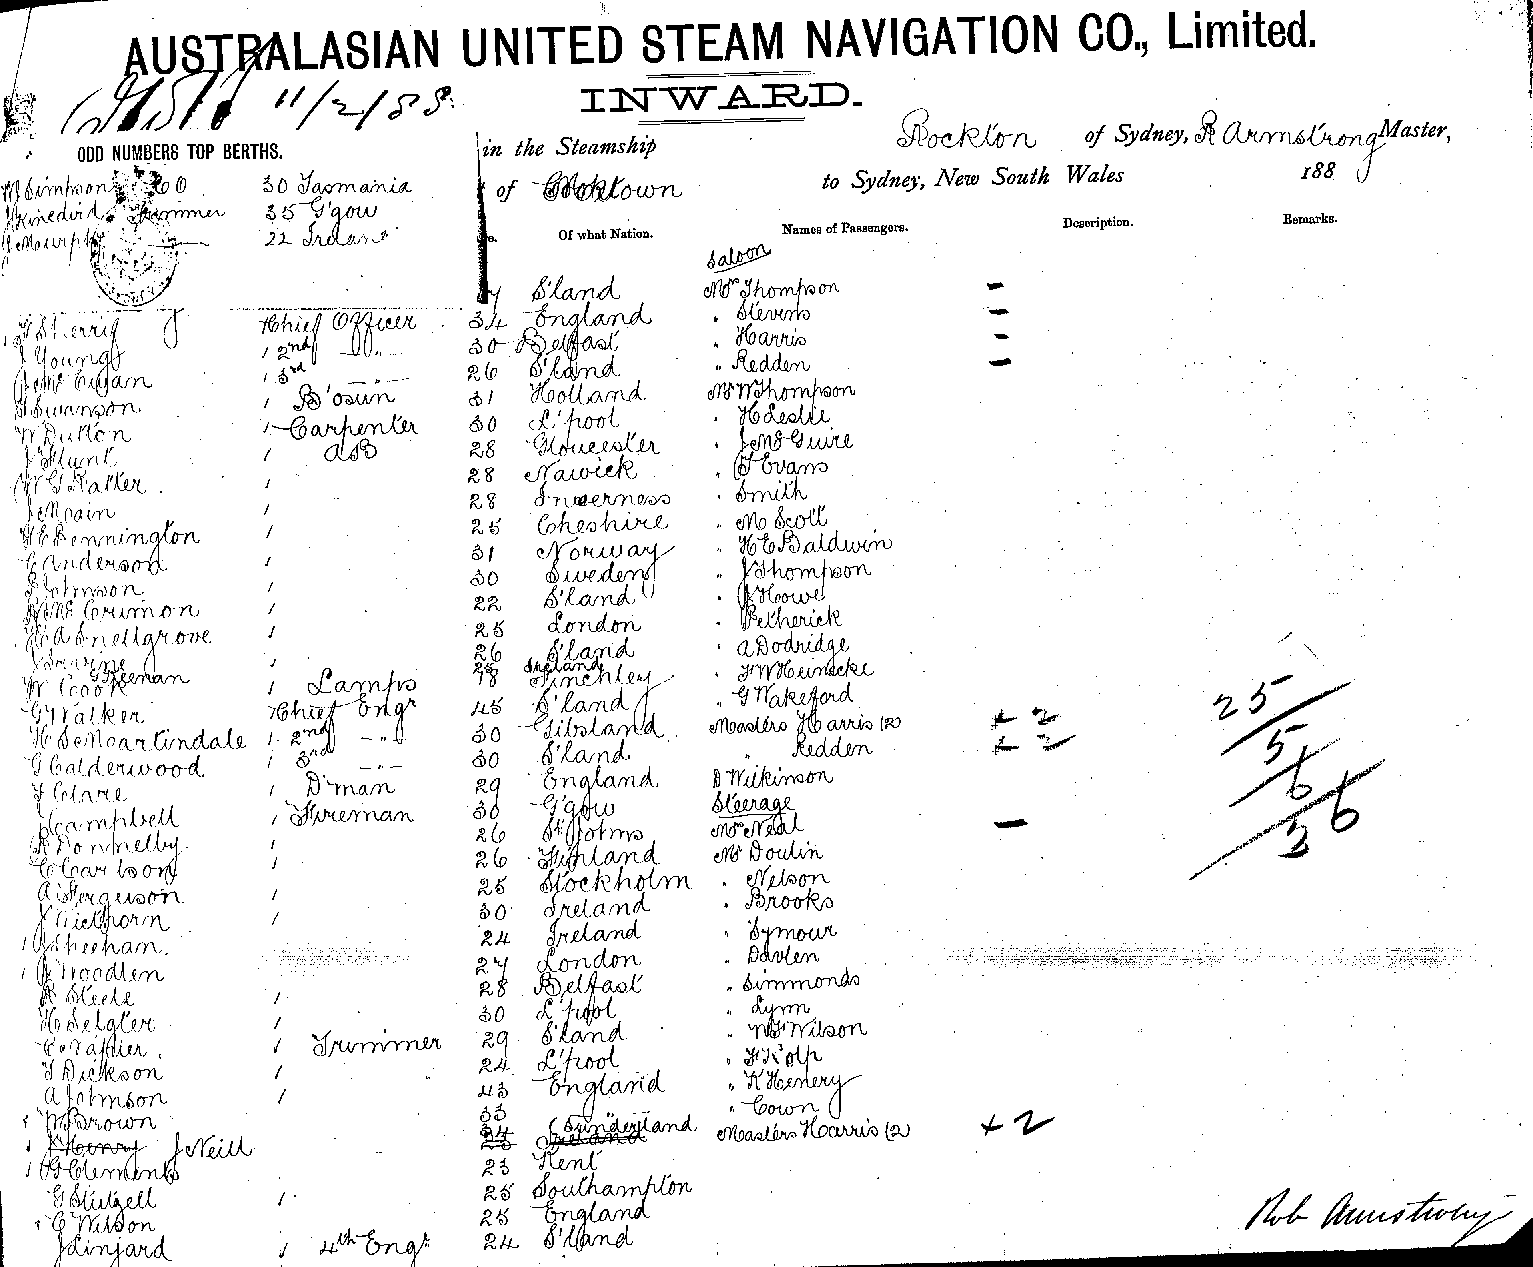 AUSTRALASIAN UNITED STEAM NAVIGATION CO., Limited.
11/2/88.
INWARD.
ODD NUMBERS TOP BERTHS.
in the Steamship Rockton of Sydney, R Armstrong Master,
of Cooktown to Sydney, New South Wales 188
W Simpson 30 Tasmania
Trimmer 35 G'gow
J Murphy 22 Ireland
Of what Nation. Names of Passengers. Description. Remarks.
Saloon
S'land Mrs Thompson -
Chief Officer 34 England " Stevens -
J Young 1 2nd -"- 30 Belfast " Harris -
J McEwan 1 3rd -"- 26 S'land " Redden -
Swanson 1 B'osun 31 Holland Mr W Thompson
W Dutton 1 Carpenter 30 L'pool " H Leslie
J Hunt 1 AB 28 Gloucester " J McGuire
W G Ratter 1 28 Nawick " T Evans
1 28 Inverness " Smith
H E Bennington 1 25 Cheshire " M Scott
C Anderson 1 31 Norway " H E Baldwin
J Johnson 1 30 Sweden " J Thompson
McCrimon 1 22 S'land " J Howe
A Snellgrove 1 25 London " Petherick
1 26 S'land " A Dodridge
G Keenan 28 Ireland
W Cook 1 Lamps 18 Finchley " F W Heinecke
G Walker Chief Engr 45 S'land " G Wakeford
H S Martindale 1 2nd -"- 30 Gibsland Masters Harris (2) + 2
G Calderwood 1 3rd -"- 30 S'land " Redden + 2
T Clare 1 D'man 29 England D Wilkinson
J Campbell 1 Fireman 30 G'gow Steerage
R Donnelby 1 26 St Johns Mrs Neal -
C Carlson 1 26 Finland Mr Doulin
A Ferguson 1 25 Stockholm " Nelson
J Tickhorn 1 30 Ireland " Brooks
1 J Sheeham 24 Ireland " Symour
1 J Woodlen 27 London " Davlen
R Steele 1 28 Belfast " Simmonds
H Selgler 1 30 L'pool " Lynn
1 Trimmer 29 S'land " W F Wilson
T Dickson 1 24 L'pool
A Johnson 1 43 England " K Henery
W Brown 33 " Cown
1 J Henry J Neill 34 Sunderland Masters Harris (2) + 2
23 Ireland
1 G Clements 23 Kent
G Stutzell 1 25 Southampton
C Wilson 25 England
J Linjard 1 4th Engr 24 S'land
25
5
6
36
Rob Armstrong